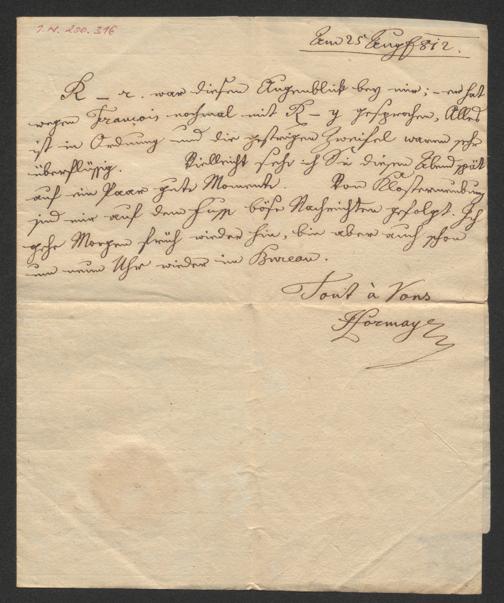 I.N. 200.316
Am 25 Aug 812.
K – r. war diesen Augenblick bey mir; – er hat
wegen François nochmal mit K – y gesprochen. Alles
ist in Ordnung und die gestrigen Zweifel waren sehr
überflüssig. Vielleicht sehe ich Sie diesen Abend spät
auf ein Paar gute Momente. Von Klosterneuburg
sind mir auf dem Fuße böse Nachrichten gefolgt. Ich
gehe Morgen früh wieder hin, bin aber auch schon
um neun Uhr wieder im Bureau.
Tout à Vous
Hormayr